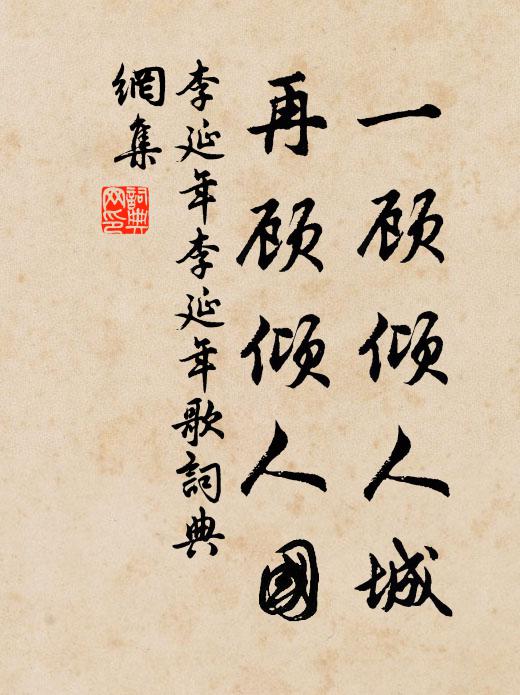 一顾倾人城
再顾倾人國
李延年李延年歌詞典
網集
詞典網印